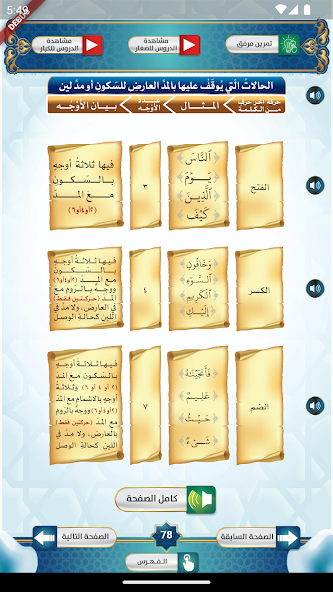 5:49
DEBUG
تمرين مرفق
مشاهدة
الدروس للصغار
مشاهدة
الدروس للكبار
الحالات التي يوقف عليها بالمد العارض للسكون أو مد لين
حركة آخر حرف
من الكلمة
المثال
عدد
الأوجه
بيان الأوجه
الفتح
النَّاسَ
يَوْمَ
الَّذِينَ
كَيْفَ
٣
فيها ثلاثة أوجه
بالسكون
مع المد
(٢أو٤أو٦)
الكسر
وَخَافُونِ
السَّوْءِ
الْكَرِيمِ
إِلَيْكِ
٤
فيها ثلاثة أوجه
بالسكون مع المد
(٢أو٤أو٦)
ووجه بالروم مع
المد (حركتين فقط)
بالعارض، ولا مد في
اللين كحالة الوصل
الضم
فَأَنجَيْنَاهُ
عَلِيمٌ
حَيْثُ
شَيْءٌ
٧
فيها ثلاثة أوجه
بالسكون مع المد
(٢ أو ٤ أو ٦) وثلاثة
أوجه بالاشمام مع المد
(٢أو٤أو٦) ووجه بالروم
مع المد (حركتين فقط)
بالعارض، ولا مد في
اللين كحالة الوصل
كامل الصفحة
الصفحة السابقة
78
الصفحة التالية
الفهرس